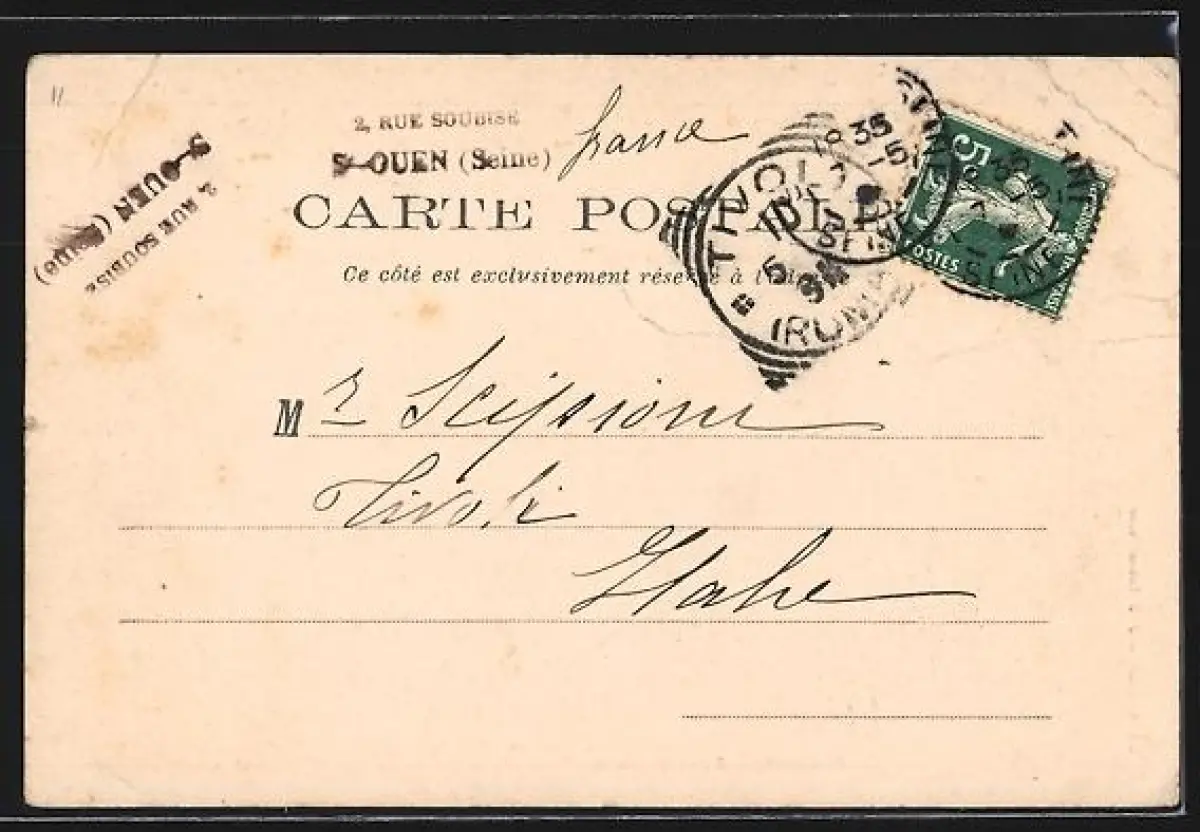 2, RUE SOUBISE
St-OUEN (Seine) france
CARTE POSTALE
Ce côté est exclusivement réservé à
St-OUEN (Seine)
2, RUE SOUBISE
TIVOLI
(ROMA)
18 35
SEINE
5
POSTES
Mr Scipioni
Tivoli
Italie